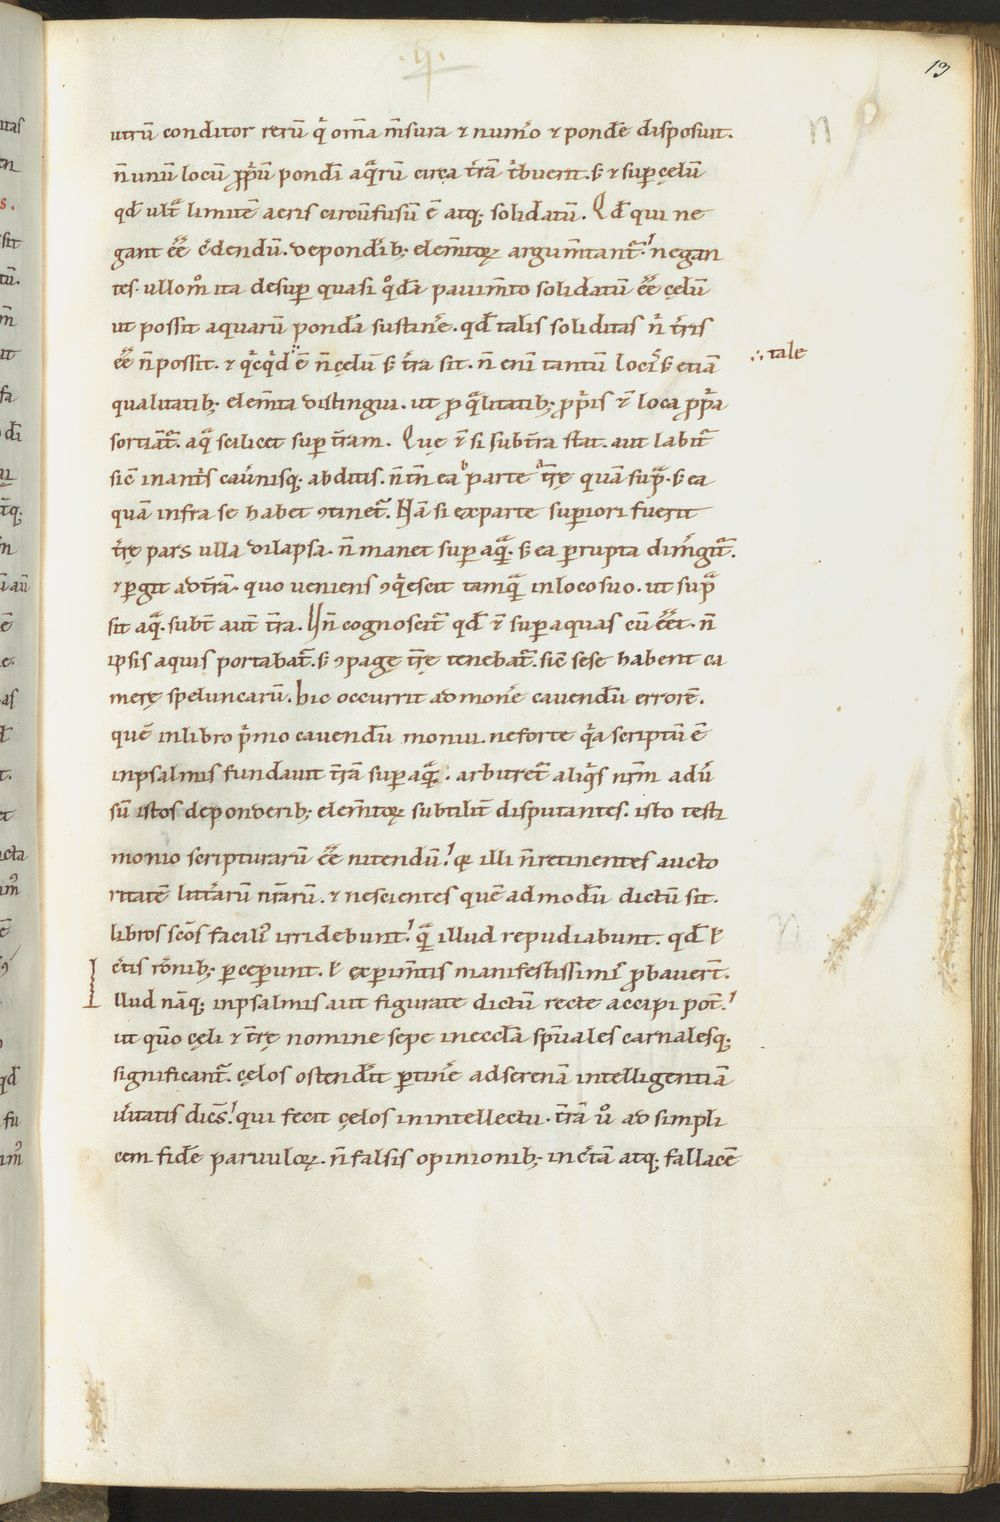 .ii.
13
utrū conditor rerū q̇ om̄a m̄sura ⁊ num̄o ⁊ pond̄e disposuit. n
n̄ unū locū ꝓp̄ū pond̄i aq̄rū circa t̄rā t̄buerit. ꝫ ⁊ suꝑ cęlū
qd̄ ult̄ limitē aeris circūfusū ē atq; solidatū. Qd̄ qui ne
gant ēē c̄dendū. de pond̄ib; elem̄toꝝ argum̄tant̄. negan
tes. ullom̊ ita desuꝑ quasi q̊dā pauim̄to solidatū ēē cęlū
ut possit aquarū pond̄a sustin̄e. qd̄ talis soliditas n̄ t̄ris
ēē n̄ possit. ⁊ q̇cq̇d ē n̄ cęlū ꝫ t̄ra sit. n̄ eni tantū locis ꝫ etiā ∴ tale
qualitatib; elem̄ta distingui. ut ꝓ q̄litatib; ꝓp̄is ⁊ loca ꝓp̄a
sortiāt̄. aq̄ scilicet suꝑ t̄ram. Quę ⁊ si sub t̄ra stat. aut labit̄
sic̄ in ant̄s cau̅nisq; abditis. n̄ tn̄ ea parte t̄rę quā sup̄. ꝫ ea
quā infra se habet ꝯtinet̄. Nā si ex parte suꝑiori fuerit
t̄rę pars ulla dilapsa. n̄ manet suꝑ aq̄. ꝫ ea ꝑrupta dim̄git̄.
⁊ ꝑgit ad t̄rā. quo ueniens ꝯq̇escit tamq̄ in loco suo. ut sup̄
sit aq̄. subt̄ aut̄ t̄ra. Hn̄ cognoscit̄ qd̄ ⁊ suꝑ aquas cū ēēt. n̄
ipsis aquis portabat̄. ꝫ ꝯpagę t̄rę tenebat̄. sic̄ sese habent ca
merę speluncarū. hic occurrit admon̄e cauendū errorē.
quē in libro p̄mo cauendū monui. ne forte q̇a scriptū ē
in psalmis fundauit t̄rā suꝑ aq̄. arbitret̄ aliq̇s nr̄m adū
sū istos de ponderib; elem̄toꝝ subtilit̄ disputantes. isto testi
monio scripturarū ēē nitendū. qꝛ illi n̄ retinentes aucto
ritatē litt̄arū nr̄arū. ⁊ nescientes quē ad modū dictū sit.
libros sc̄os facili᾽ irridebunt. q̄ illud repudiabunt. qd̄ ł
c̄tis rōnib; ꝑceꝑunt. ł exꝑim̄tis manifestissimis ꝓbauer̄t.
Illud nāq; in psalmis aut figurate dictū recte accipi pot̄.
ut qn̄o cęli ⁊ t̄rę nomine sepe in eccl̄a sp̄uales carnalesq;
significant̄. cęlos ostend̄it ꝑtin̄e ad serenā intelligentiā
ūitatis dic̄s. qui fecit cęlos in intellectu. t̄rā ů ad simpli
cem fid̄e paruuloꝝ. n̄ falsis opinionib; in c̄tā atq; fallacē